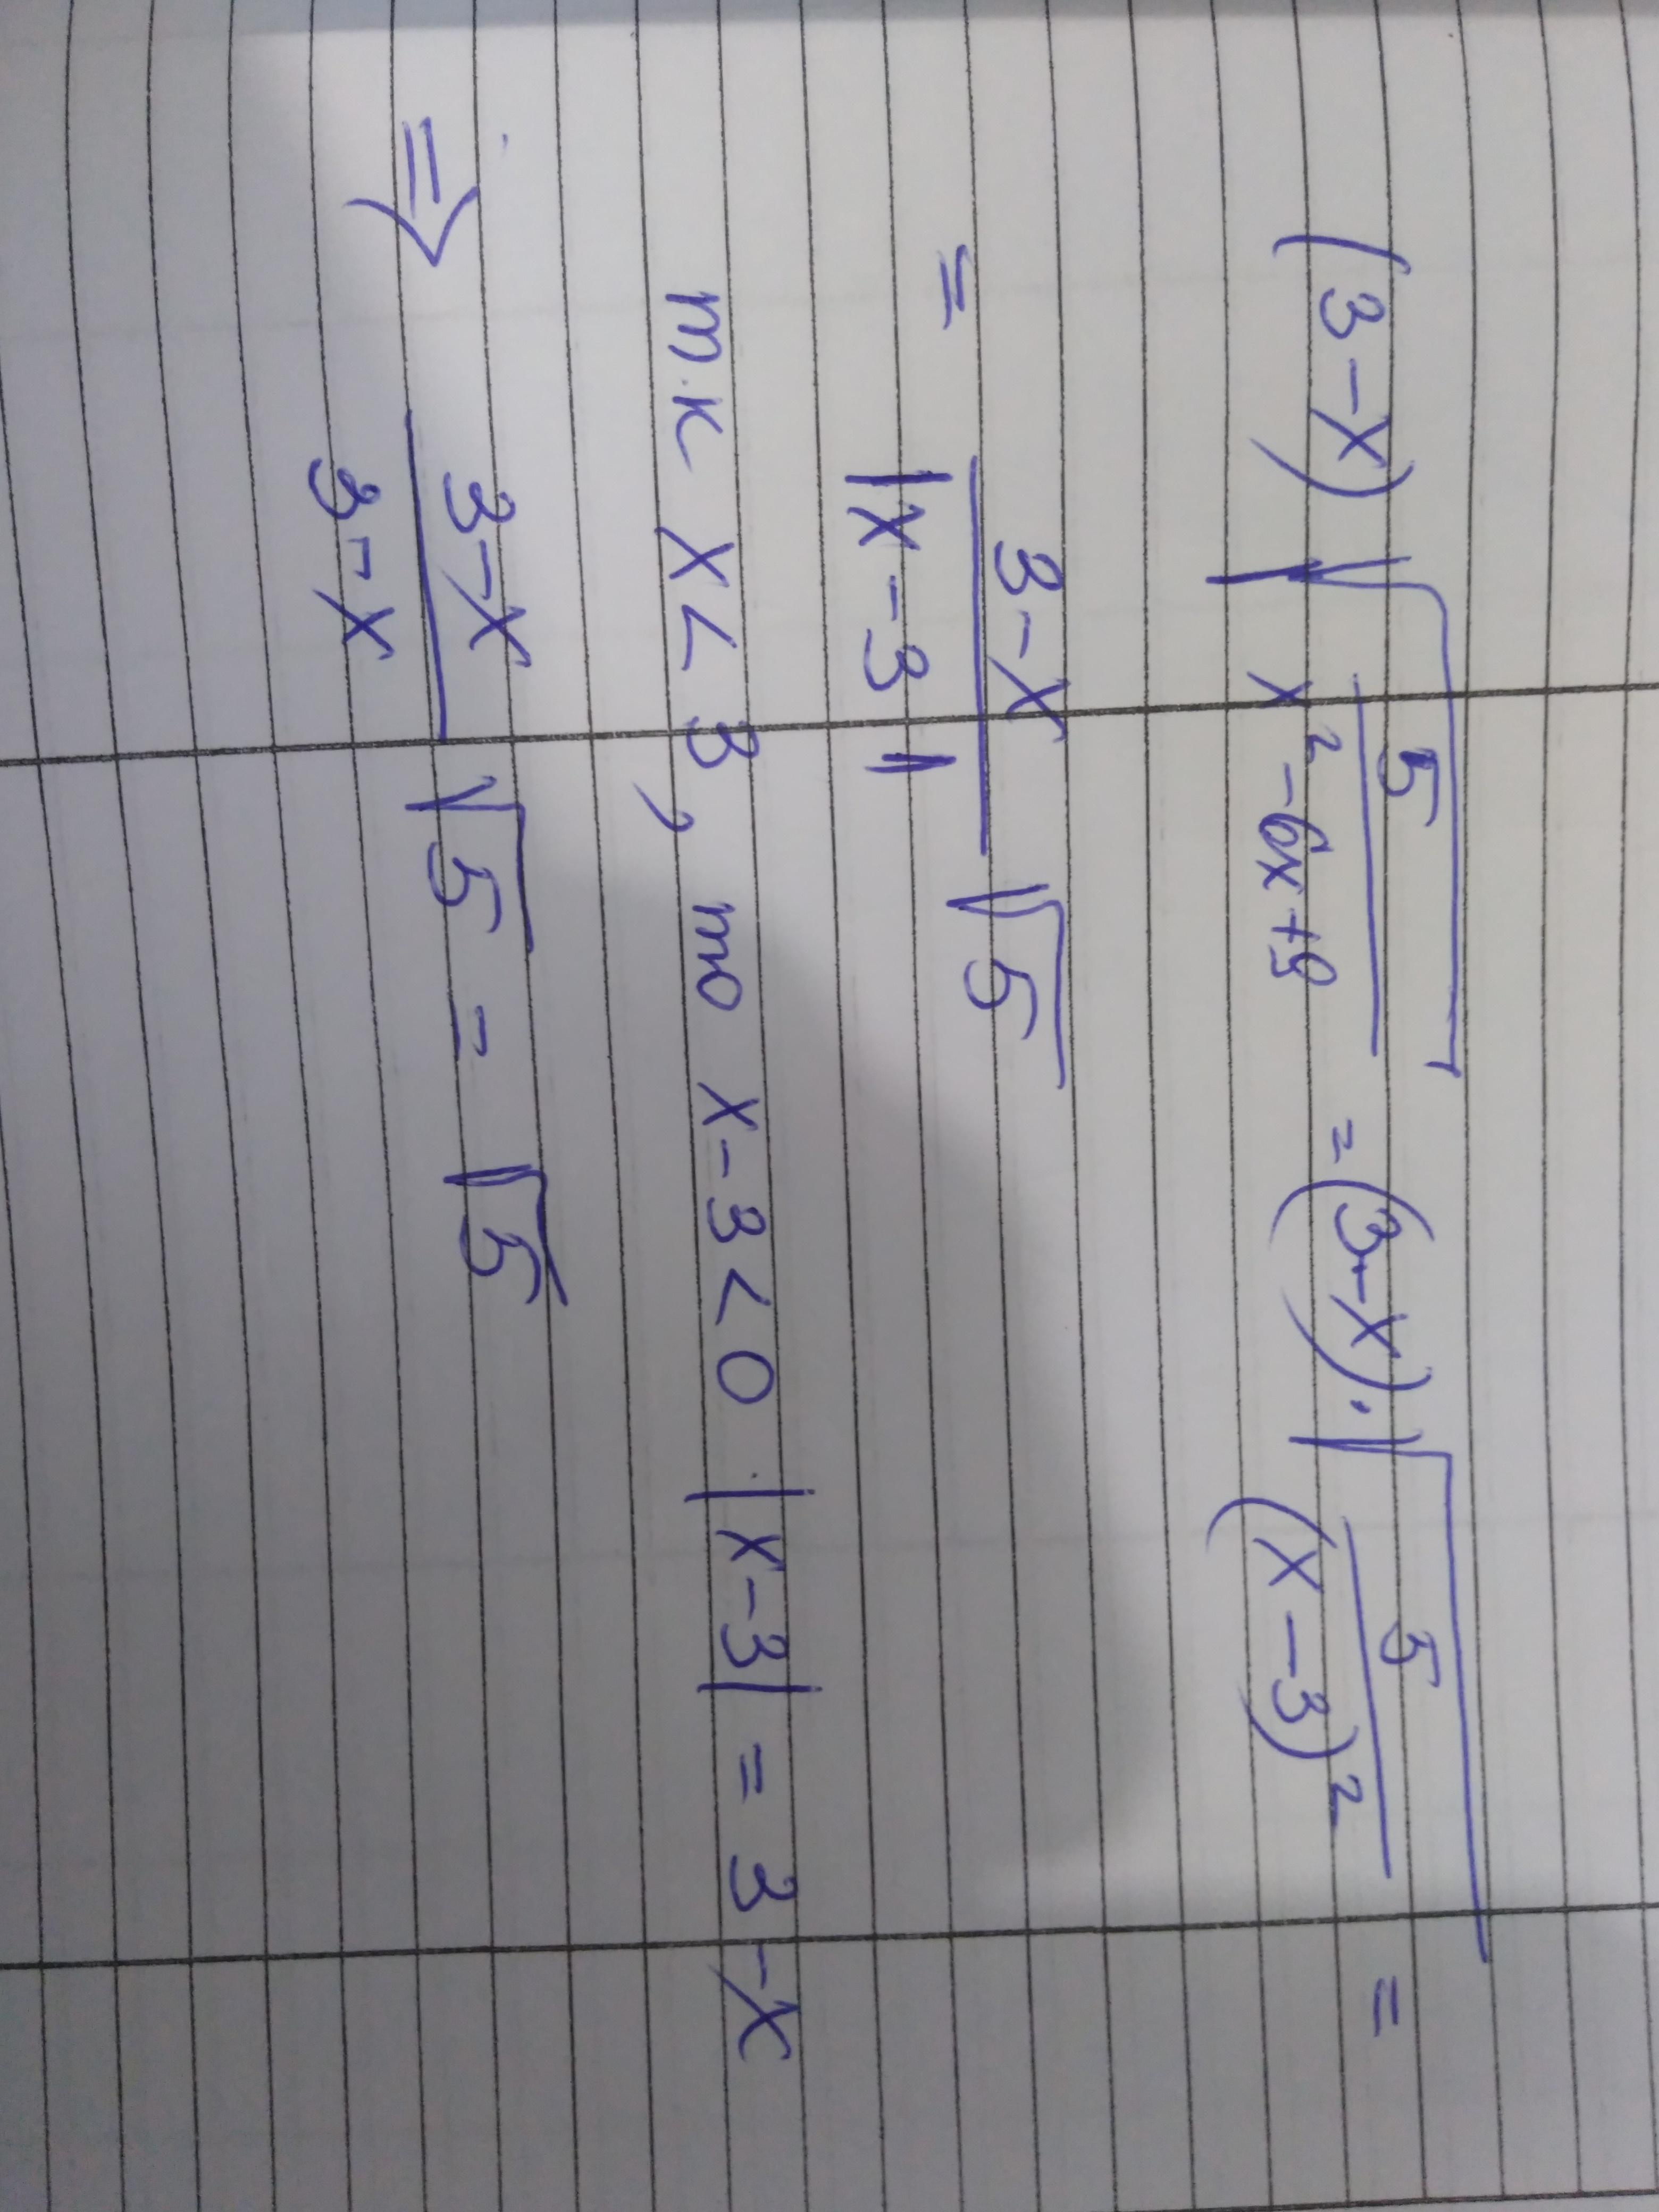 (3-x)√(5/(x²-6x+9)) = (3-x)·√(5/(x-3)²) =
= (3-x)/|x-3| √5
т.к x<3, то x-3<0 |x-3| = 3-x
⇒ (3-x)/(3-x) √5 = √5